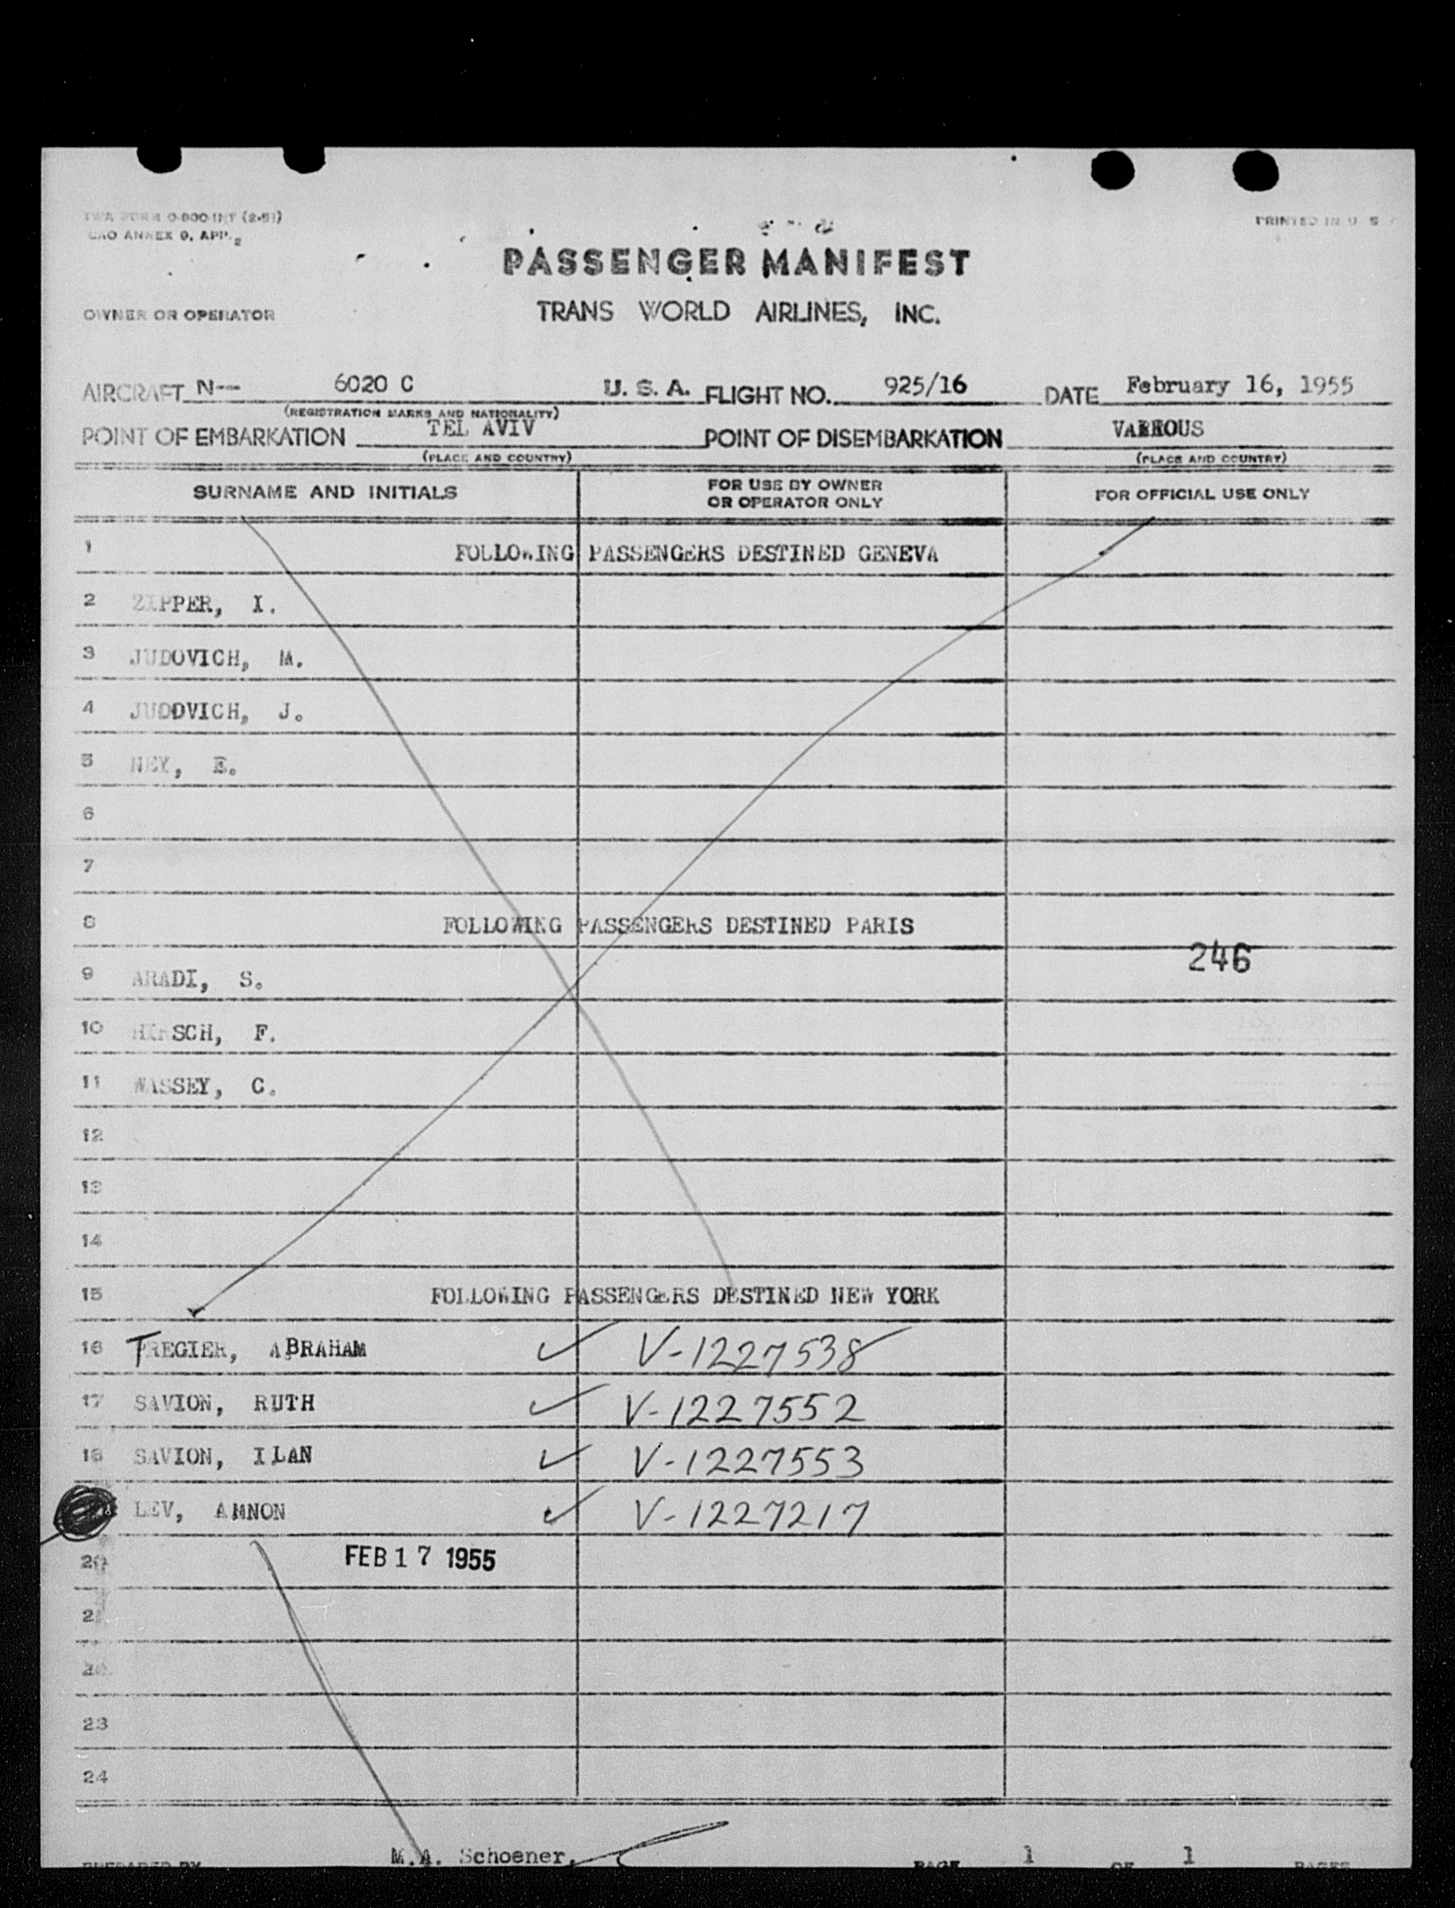 TWA FORM O-800 INT (2-51)
CAO ANNEX 9, APP. 2
PRINTED IN U S
PASSENGER MANIFEST
OWNER OR OPERATOR
TRANS WORLD AIRLINES, INC.
AIRCRAFT N-- 6020 C U. S. A. FLIGHT NO. 925/16 DATE February 16, 1955
(REGISTRATION MARKS AND NATIONALITY)
POINT OF EMBARKATION TEL AVIV POINT OF DISEMBARKATION VARIOUS
(PLACE AND COUNTRY) (PLACE AND COUNTRY)
SURNAME AND INITIALS FOR USE BY OWNER OR OPERATOR ONLY FOR OFFICIAL USE ONLY
1 FOLLOWING PASSENGERS DESTINED GENEVA
2 ZIPPER, I.
3 JUDOVICH, M.
4 JUDOVICH, J.
5 NEY, E.
6
7
8 FOLLOWING PASSENGERS DESTINED PARIS
246
9 ARADI, S.
10 HIRSCH, F.
11 WASSEY, C.
12
13
14
15 FOLLOWING PASSENGERS DESTINED NEW YORK
16 TREGIER, ABRAHAM V-1227538
17 SAVION, RUTH V-1227552
18 SAVION, ILAN V-1227553
LEV, AMNON V-1227217
20 FEB 17 1955
21
22
23
24
PREPARED BY M.A. Schoener, PAGE 1 OF 1 PAGES